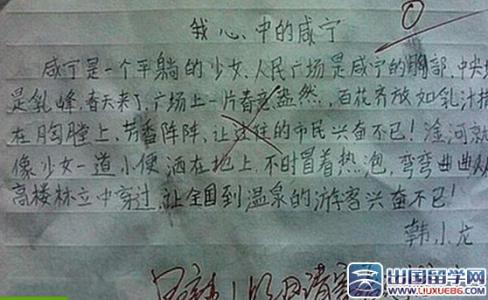 我心中的咸宁
咸宁是一个平躺的少女,人民广场是咸宁的胸部,中央
是乳峰,春天来了,广场上一片春意盎然,百花齐放如乳汁
在胸膛上,芳香阵阵,让过往的市民兴奋不已!淦河就
像少女一道小便洒在地上,不时冒着热泡,弯弯曲曲从
高楼林立中穿过,让全国到温泉的游客兴奋不已!
韩小龙
出国留学网
www.liuxue86.com